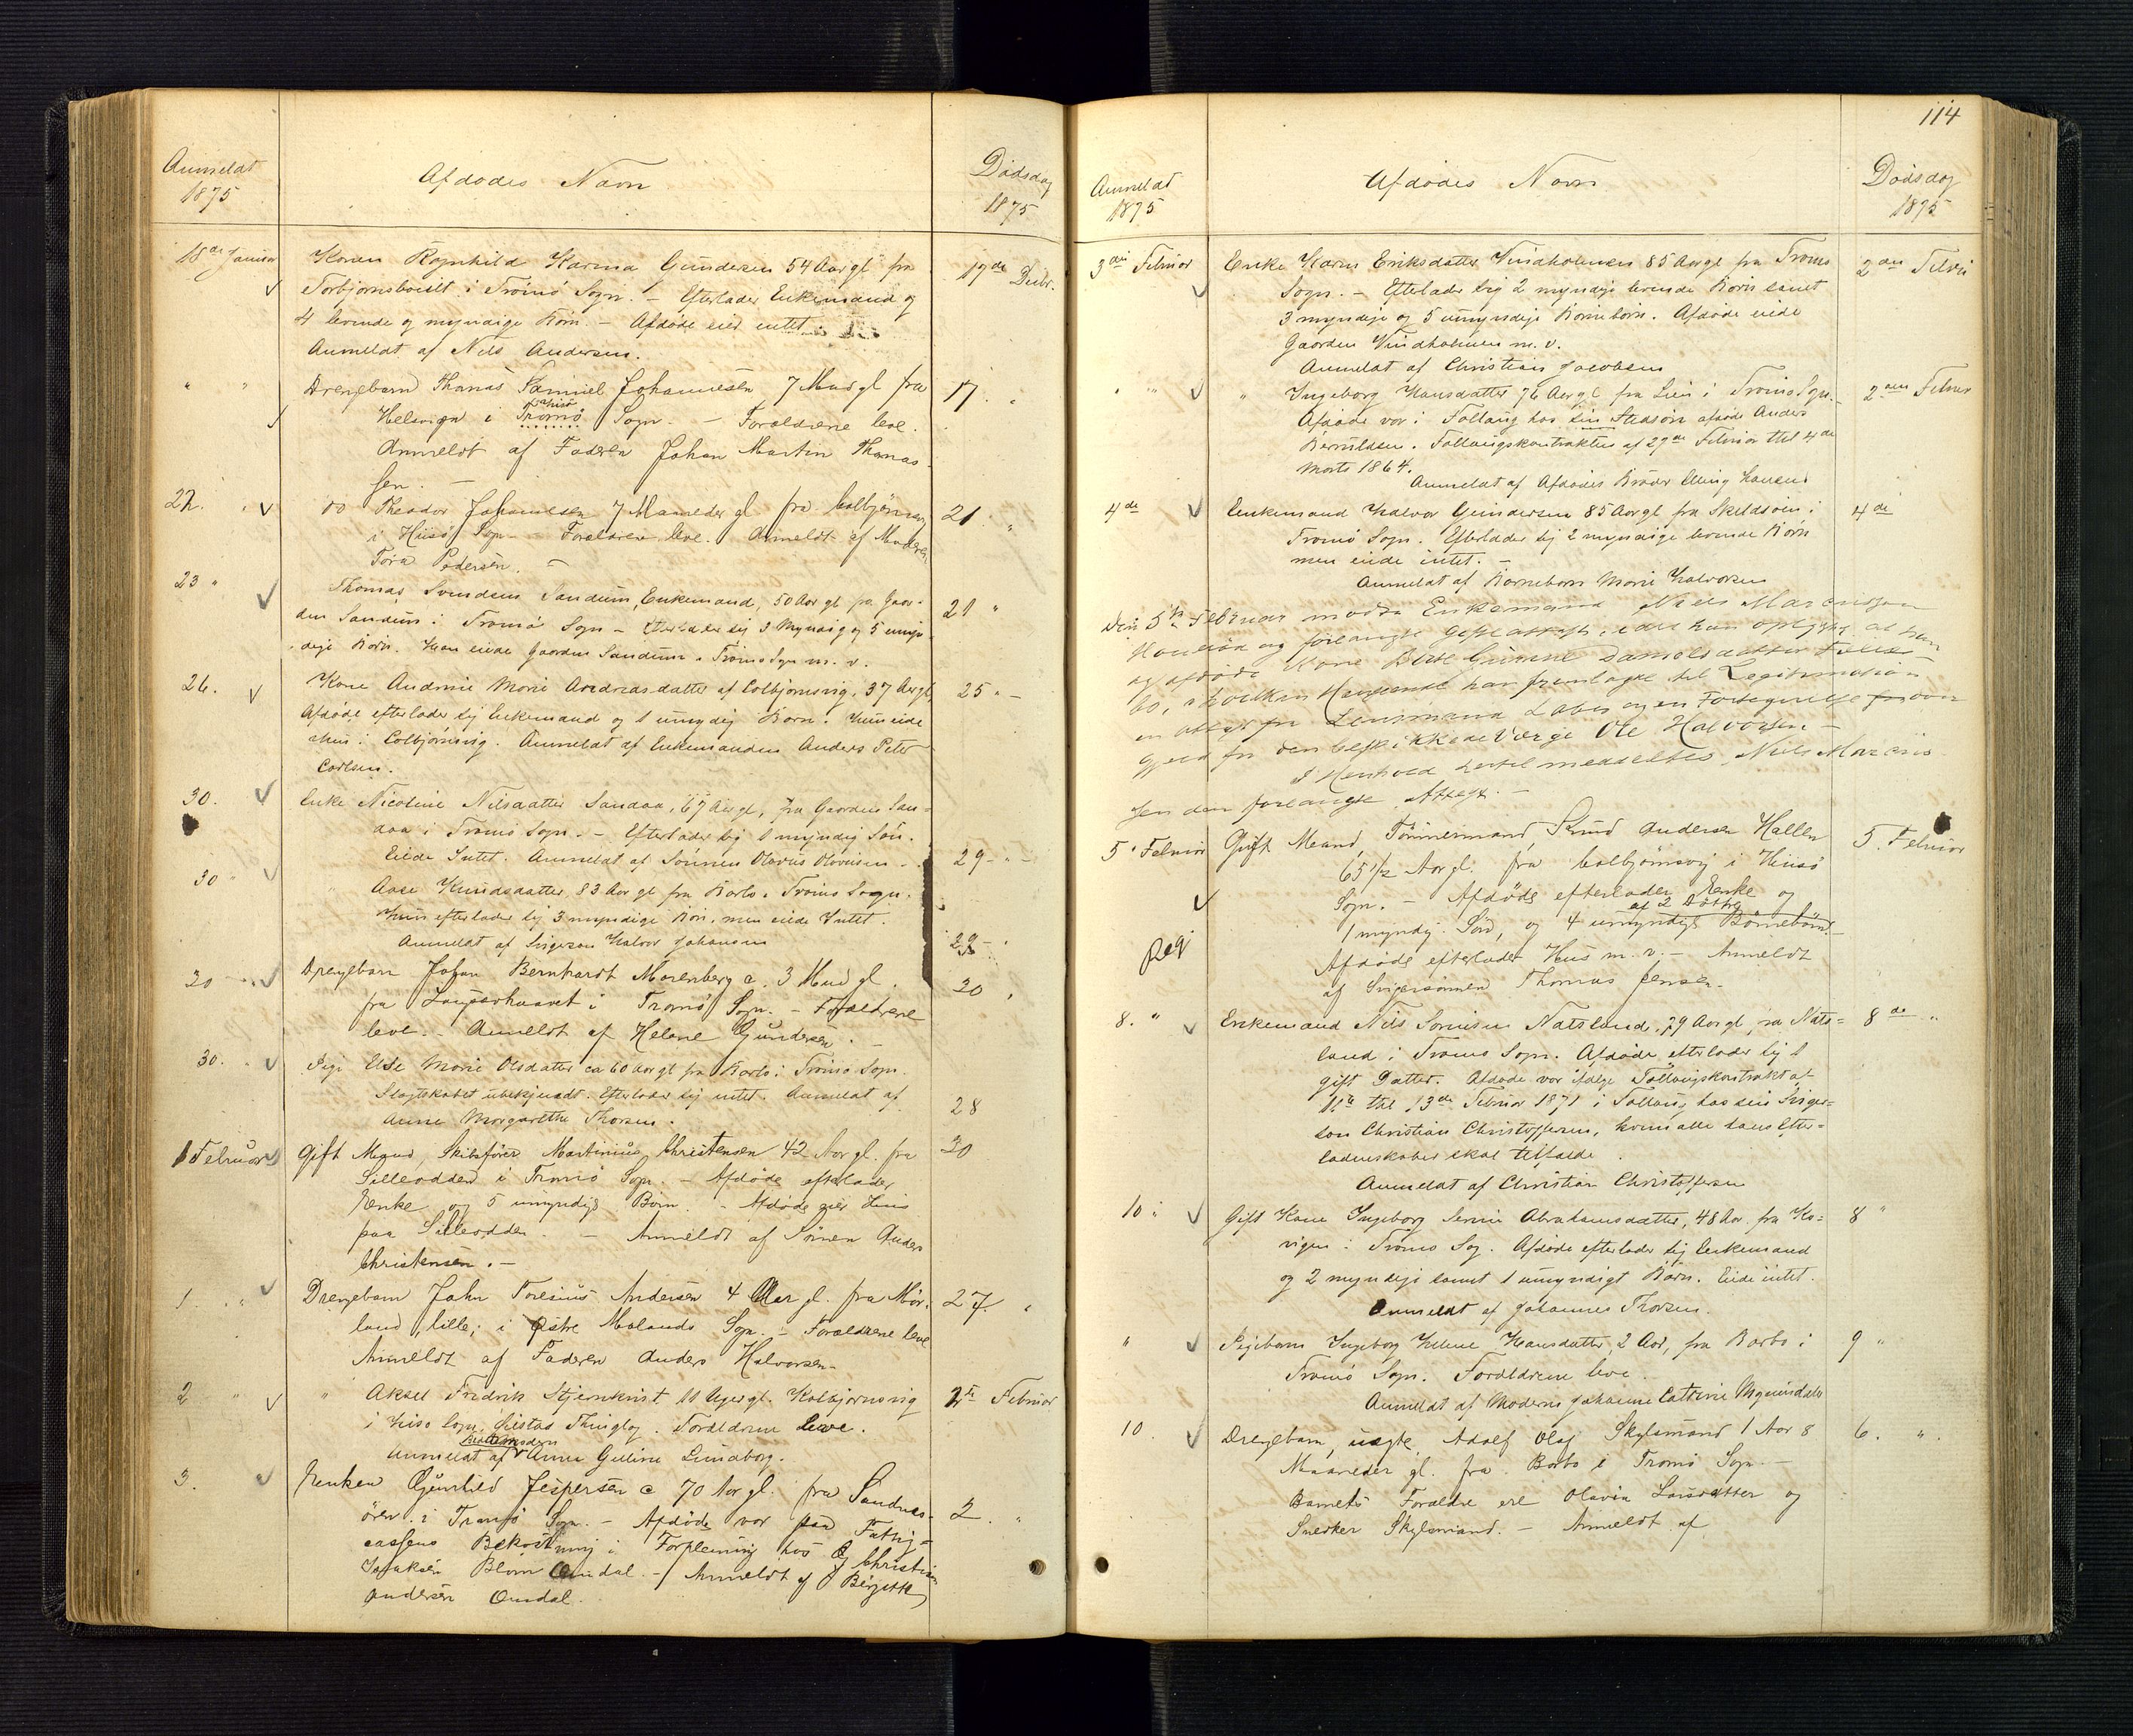 Anmeldt
1875
Afdødes Navn
Dødsdag
1875
18de Januar
Konen Ragnhild Karina Gundersen 54 Aar gl fra
17de Decbr.
Torbjørnsboedt i Tromø Sogn. – Efterlader Enkemand og
4 levende og myndige Børn – Afdøde eied intet.
Anmeldt af Nils Andersen.
" "
Drengebarn Thomas Samuel Johannesen 7 Mdr gl fra
17. "
Hisø
Helsvigen i Tromø Sogn. – Forældrene leve.
Anmeldt af Faderen Johan Martin Thomas-
sen. –
22. "
do Theodor Johannesen 7 Maaneder gl fra Colbjørnsvig
21. "
i Hisø Sogn – Forældrene leve. Anmeldt af Moderen
Tora Pedersen. –
23 "
Thomas Svendsen Sandum, Enkemand, 50 Aar gl fra Gaar-
21 "
den Sandum i Tromø Sogn – Efterlader sig 3 Myndig og 5 umyn-
dige Børn. Han eiede Gaarden Sandum i Tromø Sogn m. v.
26.
Kone Andrine Marie Andreasdatter af Colbjørnsvig, 37 Aar gl,
25 " –
Afdøde efterlader sig Enkemand og 1 umyndig Barn. Hun eiede
Hus i Colbjørnsvig. Anmeldt af Enkemanden Anders Peter
Carlsen.
30.
Enke Nicoline Nilsdatter Sandaa, 67 Aar gl, fra Gaarden San-
daa i Tromø Sogn. – Efterlader sig 1 myndig Søn.
Eiede Intet. Anmeldt af Sønnen Olavus Olavusen.
29 – " –
30 "
" Aase Knudsdatter 83 Aar gl fra Barbo i Tromø Sogn.
Hun efterlader sig 3 myndige Børn, men eiede Intet.
Anmeldt af Svigersøn Halvor Johansen
29 – "
30 "
Drengebarn Johan Bernhardt Morenberg c. 3 Mnd gl.
30 "
fra Longsehuuset i Tromø Sogn. – Forældrene
leve. – Anmeldt af Helene Gundersen. –
30. "
Pige Else Marie Olsdatter ca 60 Aar gl fra Barbo i Tromø Sogn.
Slægtskabet ubekjendt. Efterlader sig intet. Anmeldt af
28
Anne Margarethe Thorsen.
1 Februar
Gift Mand, Skibsfører Martinius Christensen 42 Aar gl. fra
30
Silleodden i Tromø Sogn. – Afdøde efterlader
Enke og 5 umyndige Børn. – Afdøde eier Huus
paa Silleodden. – Anmeldt af Sønnen Anders
Christensen. –
1. "
Drengebarn John Toresius Andersen 4 Aar gl. fra Mør-
27. "
land, lille, i Østre Molands Sogn. – Forældrene leve
Anmeldt af Faderen Anders Halvorsen.
2 "
" Aksel Fredrik Stjernkvist 11 Uger gl. Kolbjørnsvig
2de Februar
i Hisø Sogn, Nestas Thinglag. Forældrene Leve.
Bedstemoderen
Anmeldt af Anne Guline Lundborg.
3.
Enken Gunhild Jespersen c 70 Aar gl. fra Sandnes-
2. "
øren i Tromø Sogn. – Afdøde var paa Fattig-
cassens Bekostning i Forpleining hos Christian
Isaksen Bloin Omdal. – Anmeldt af Birgitte
Andersen Omdal.
114
Anmeldt
1875
Afdødes Navn
Dødsdag
1875
3die Februar
Enke Karen Eriksdatter Vindholmen 85 Aar gl fra Tromø
2den Febru
Sogn. – Efterlader sig 2 myndige levende Børn samt
3 myndige og 5 umyndige Børnebørn. Afdøde eiede
Gaarden Vindholmen m. v.
Anmeldt af Christian Jacobsen
" "
" Ingeborg Hansdatter 76 Aar gl fra Lien i Tromø Sogn.
2den Februar
Afdøde var i Føllaug hos sin Stedsøn afdøde Anders
Berntsen. Føllaugskontrakten af 29de Februar thl 4de
Marts 1864.
Anmeldt af Afdødes Broder Elling Hansen
4de
Enkemand Halvor Gundersen 85 Aar gl fra Skeldsøen i
4de
Tromø Sogn. Efterlader sig 2 myndige levende Børn
men eiede intet. –
Anmeldt af Barnebarn Marie Halvorsen
Den 5te Februar mødte Enkemand Niels Marcussen
og forlangte Skifteattest, idet han oplyste at han
og afdøde Kone Berte Gurine Danielsdatter
bo, i hvilken Henseende han fremlagte til Legitimation
en Attest fra Lensmand og en Forsegnelse
den beskikkede Værge Ole Halvorsen –
I Henhold hertil meddeltes Niels Marcus-
sen den forlangte Attest. –
5 Februar
Gift Mand, Tømmermand Svend Andersen Hallen
5. Februar
65 1/2 Aar gl. fra Colbjørnsvig i Hisø
Sogn. – Afdøde efterlader Enke og
af 2 Døttre
1 myndig Søn, og 4 umyndige Børnebørn. –
Reg
Afdøde efterlader Hus m. v. – Anmeldt
af Svigersønnen Thomas Jensen.
8. "
Enkemand Nils Tomesen Natsland, 79 Aar gl, fra Nats-
8de "
land i Tromø Sogn. Afdøde efterlader sig 1
gift Datter. Afdøde var ifølge Føllaugskontrakt af
11te thl 13de Februar 1871 i Føllaug hos sin Sviger-
søn Christian Christoffersen, hvem alle hans Efter-
ladenskaber skal tilfalde.
Anmeldt af Christian Christoffersen
10 "
Gift Kone Ingeborg Serine Abrahamsdatter, 48 Aar fra Ko-
8 "
vigen i Tromø Sog. Afdøde efterlader sig Enkemand
og 2 myndige samt 1 umyndigt Barn. Eiede intet.
Anmeldt af Johannes Thorsen.
"
Pigebarn Ingeborg Helene Hansdatter, 2 Aar, fra Barbo i
9 "
Tromø Sogn. Forældrene leve.
Anmeldt af Moderen Johanne Cathrine Mogensdatter
10.
Drengebarn, uægte, Adolf Olaf Skylsmand 1 Aar 8
6. "
Maaneder gl. fra Barbo i Tromø Sogn –
Barnets Forældre ere Olavia Larsdatter og
Snedker Skylsmand. – Anmeldt af